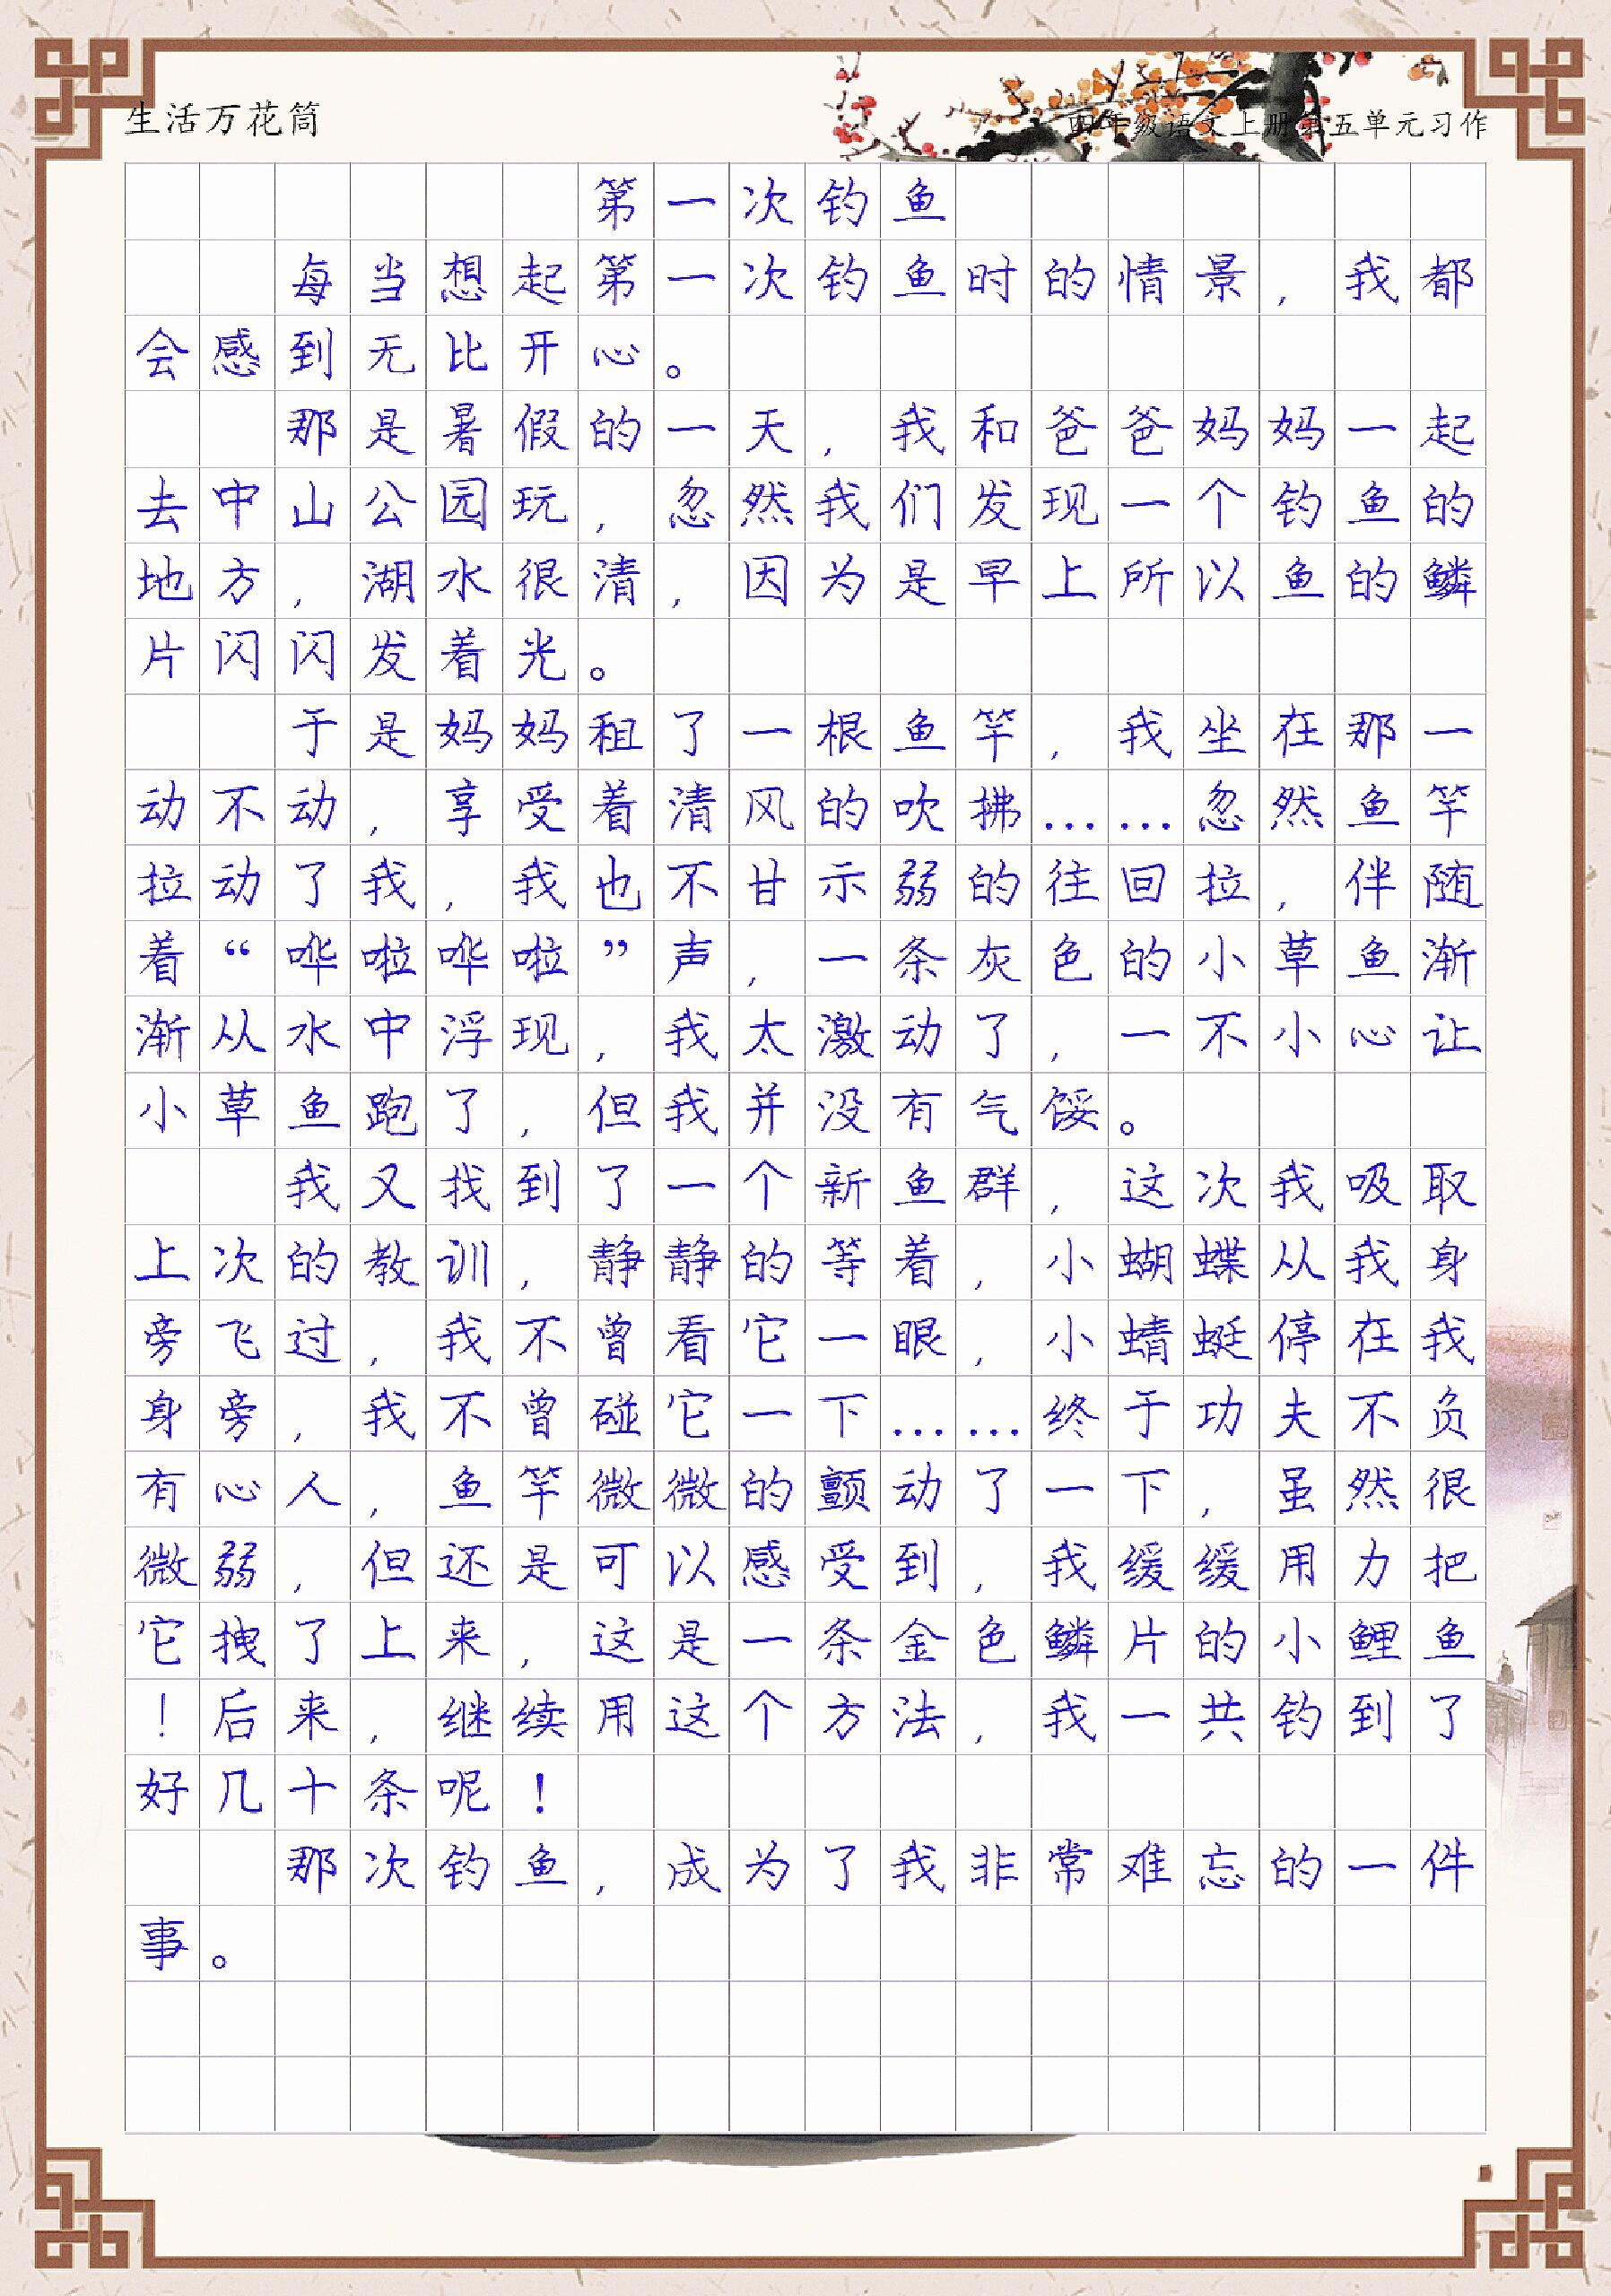 生活万花筒
四年级语文上册第五单元习作
第一次钓鱼
每当想起第一次钓鱼时的情景，我都
会感到无比开心。
那是暑假的一天，我和爸爸妈妈一起
去中山公园玩，忽然我们发现一个钓鱼的
地方，湖水很清，因为是早上所以鱼的鳞
片闪闪发着光。
于是妈妈租了一根鱼竿，我坐在那一
动不动，享受着清风的吹拂……忽然鱼竿
拉动了我，我也不甘示弱的往回拉，伴随
着“哗啦哗啦”声，一条灰色的小草鱼渐
渐从水中浮现，我太激动了，一不小心让
小草鱼跑了，但我并没有气馁。
我又找到了一个新鱼群，这次我吸取
上次的教训，静静的等着，小蝴蝶从我身
旁飞过，我不曾看它一眼，小蜻蜓停在我
身旁，我不曾碰它一下……终于功夫不负
有心人，鱼竿微微的颤动了一下，虽然很
微弱，但还是可以感受到，我缓缓用力把
它拽了上来，这是一条金色鳞片的小鲤鱼
！后来，继续用这个方法，我一共钓到了
好几十条呢！
那次钓鱼，成为了我非常难忘的一件
事。